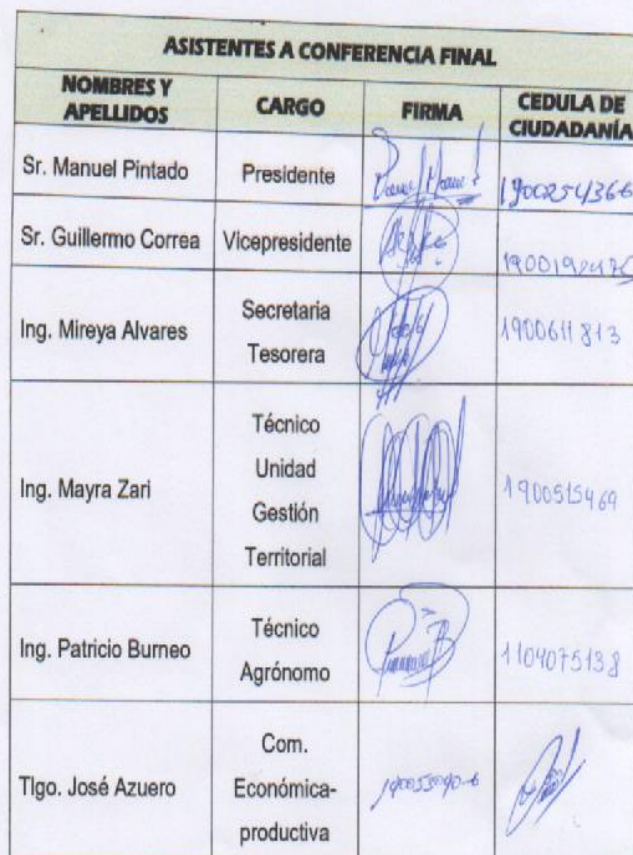 ASISTENTES A CONFERENCIA FINAL
NOMBRES Y APELLIDOS CARGO FIRMA CEDULA DE CIUDADANÍA
Sr. Manuel Pintado Presidente 1900254366
Sr. Guillermo Correa Vicepresidente
Ing. Mireya Alvares Secretaria Tesorera 1900611813
Ing. Mayra Zari Técnico Unidad Gestión Territorial 1900515469
Ing. Patricio Burneo Técnico Agrónomo 1104075138
Tlgo. José Azuero Com. Económica-productiva